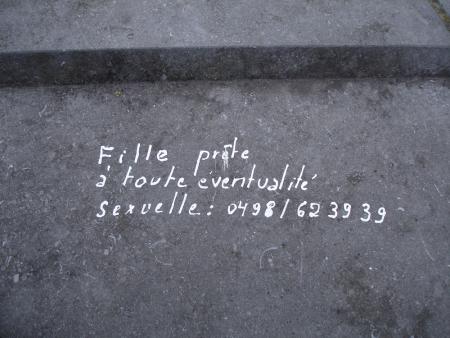 Fille prête
à toute éventualité
sexuelle : 0498/623939